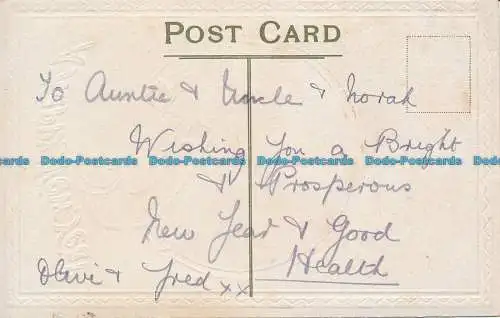 POST CARD
To Auntie & Uncle & Norah
Wishing you a Bright
Dodo-Postcards Dodo-Postcards Dodo-Postcards Dodo-Postcards Dodo-Postcards
& Prosperous
New Year & Good
Health
Olive & Fred xx